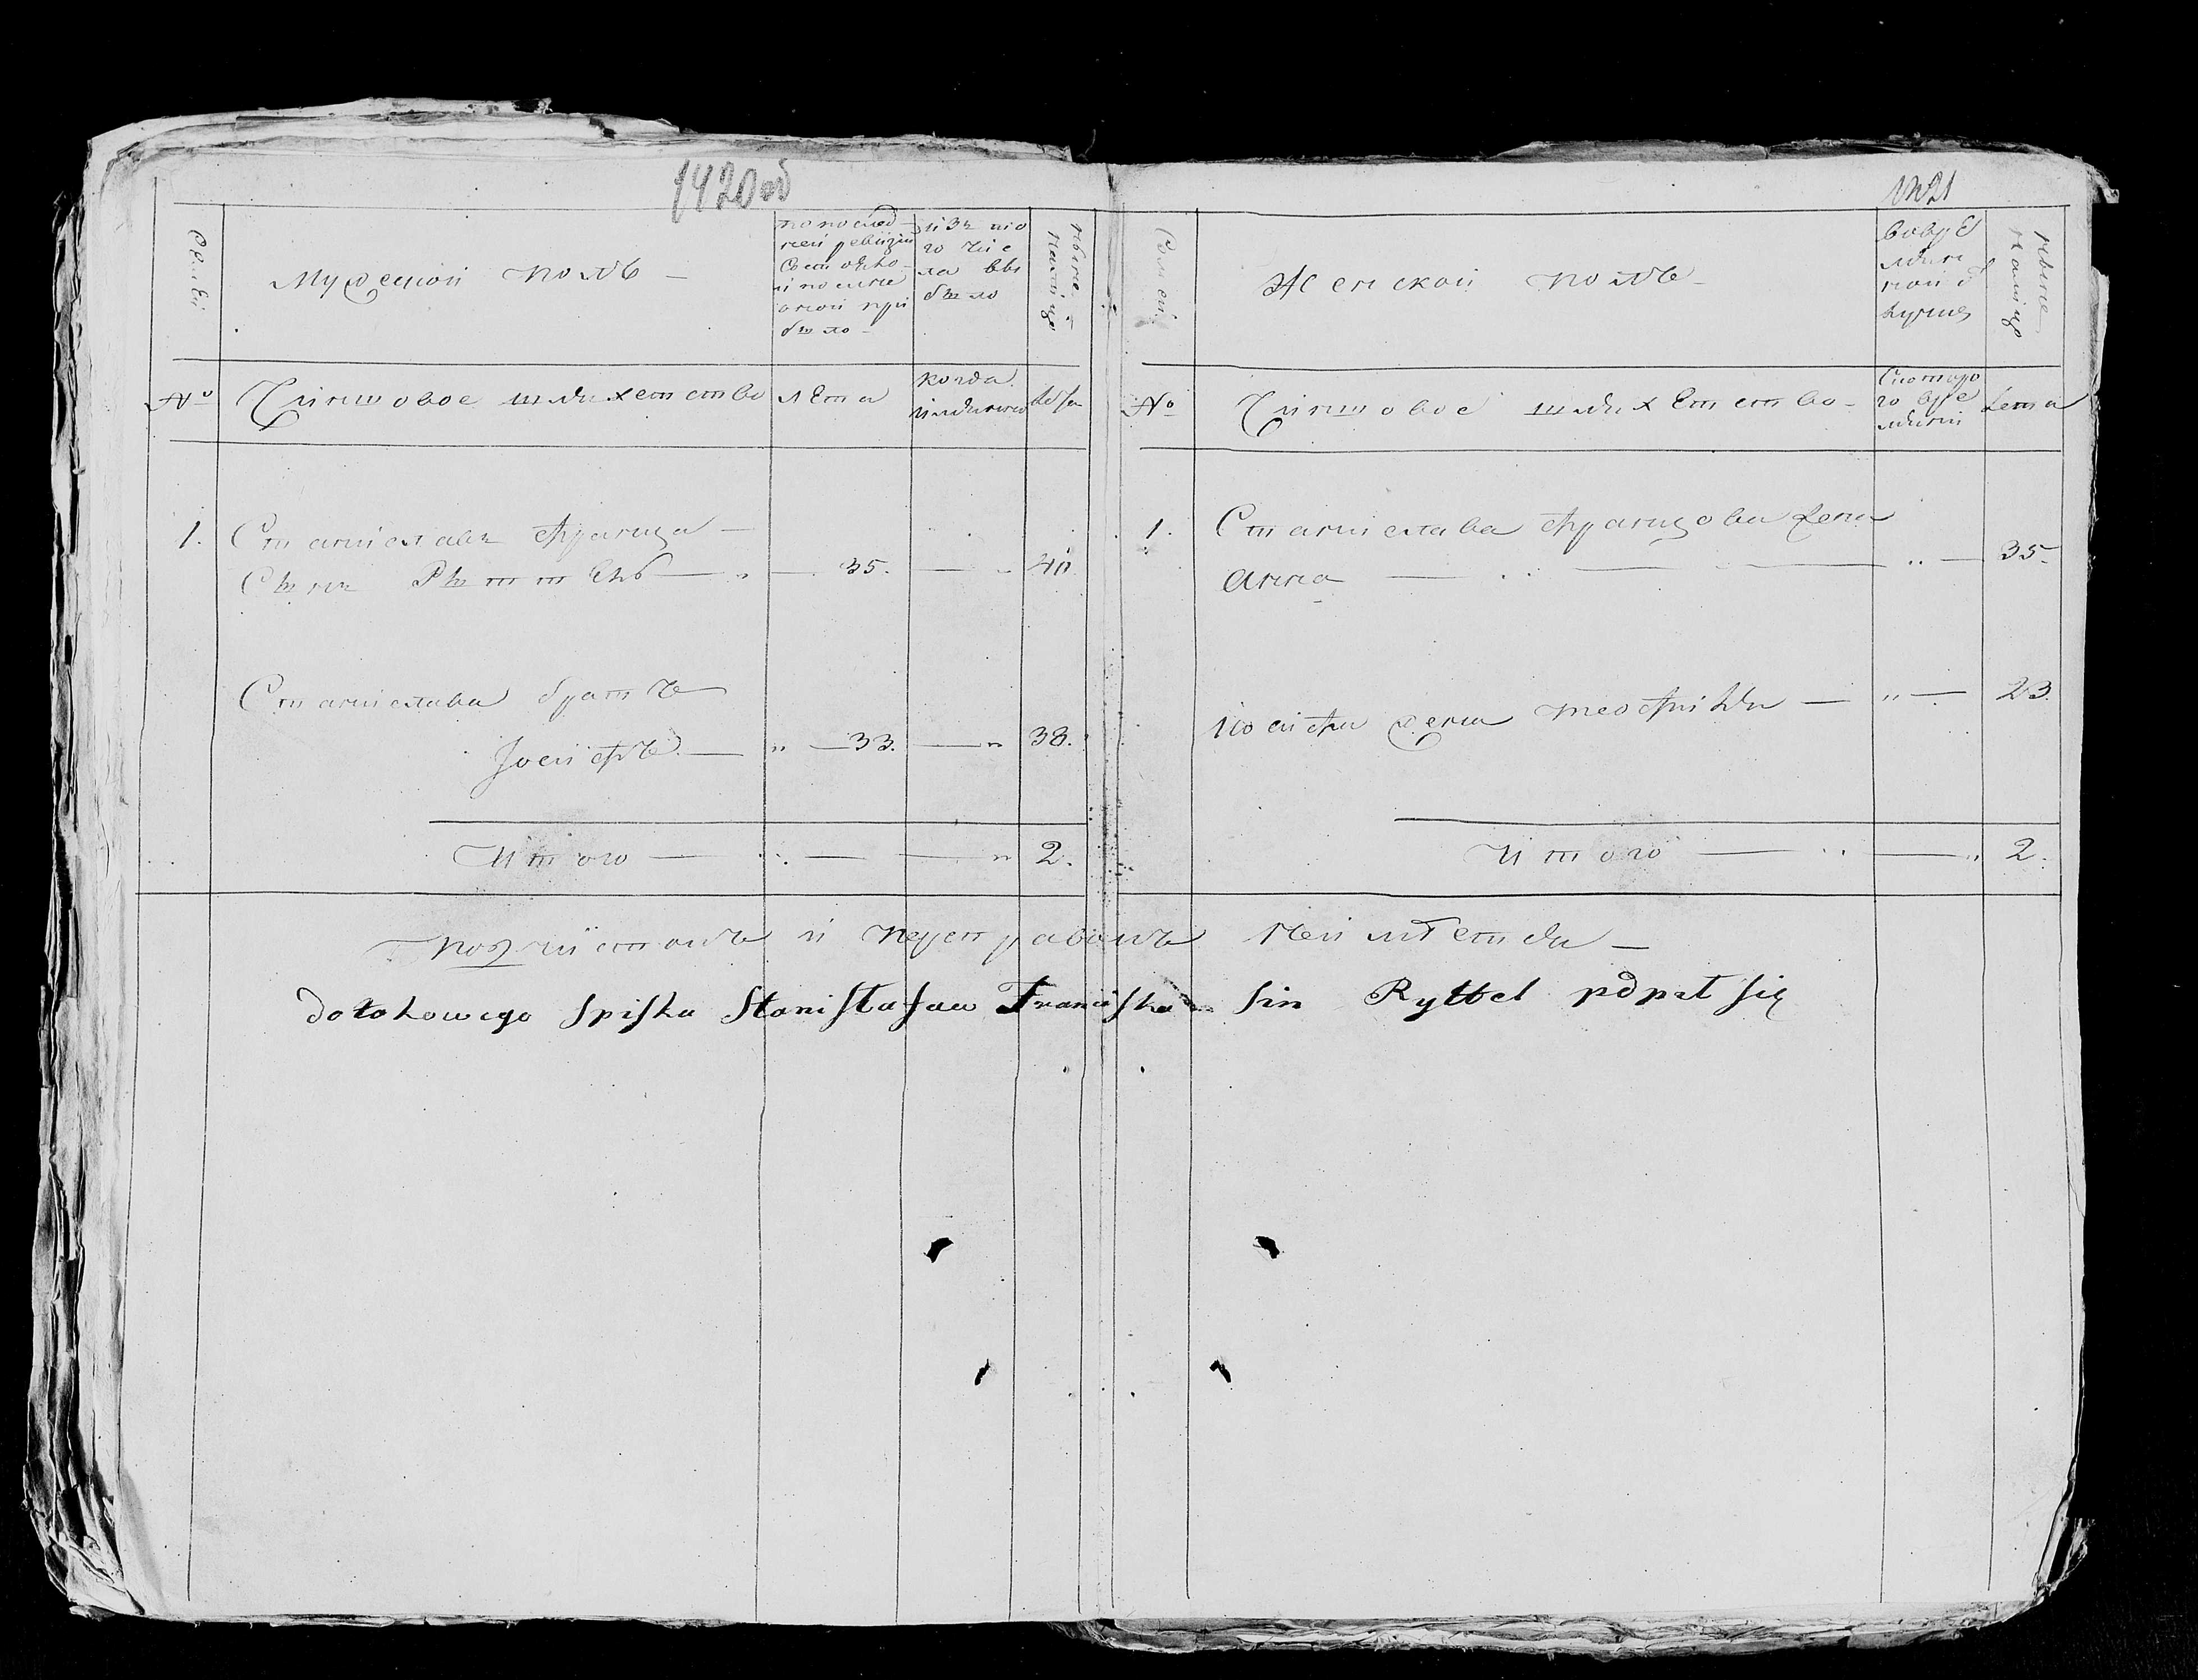 1420об
1421
Семьи
Мужескои полъ —
по послед
неи ревизіи
Состояло
и после
онои при
было —
изъ нъо
го чис
ла вы
было
Ныне
налицо
№
Чиншовое шляхетство
лета
когда
именно
Лета
1. Станиславъ Франца —
Сынъ Рыттель — „ — 35. — „ 40
Станислава братъ
Іосифъ. — „ — 33. — „ 38.
Итого — „ — — „ 2.
Семьи.
Женскои полъ —
Вовре
менн
нои о
тлучке
Ныне
налицо
№
Чиншовое шляхетство —
С котора
го вре
мени
Лета
1. Станислава Францова жена
Анна — „ — 35.
Иосифа жена Теофиля — „ — 23.
Итого — „ — „ 2.
Подлѣнномъ и неуправомъ
dotohowego Spiska Stanisłasaw Franciska sin Ryttel pdpsał się